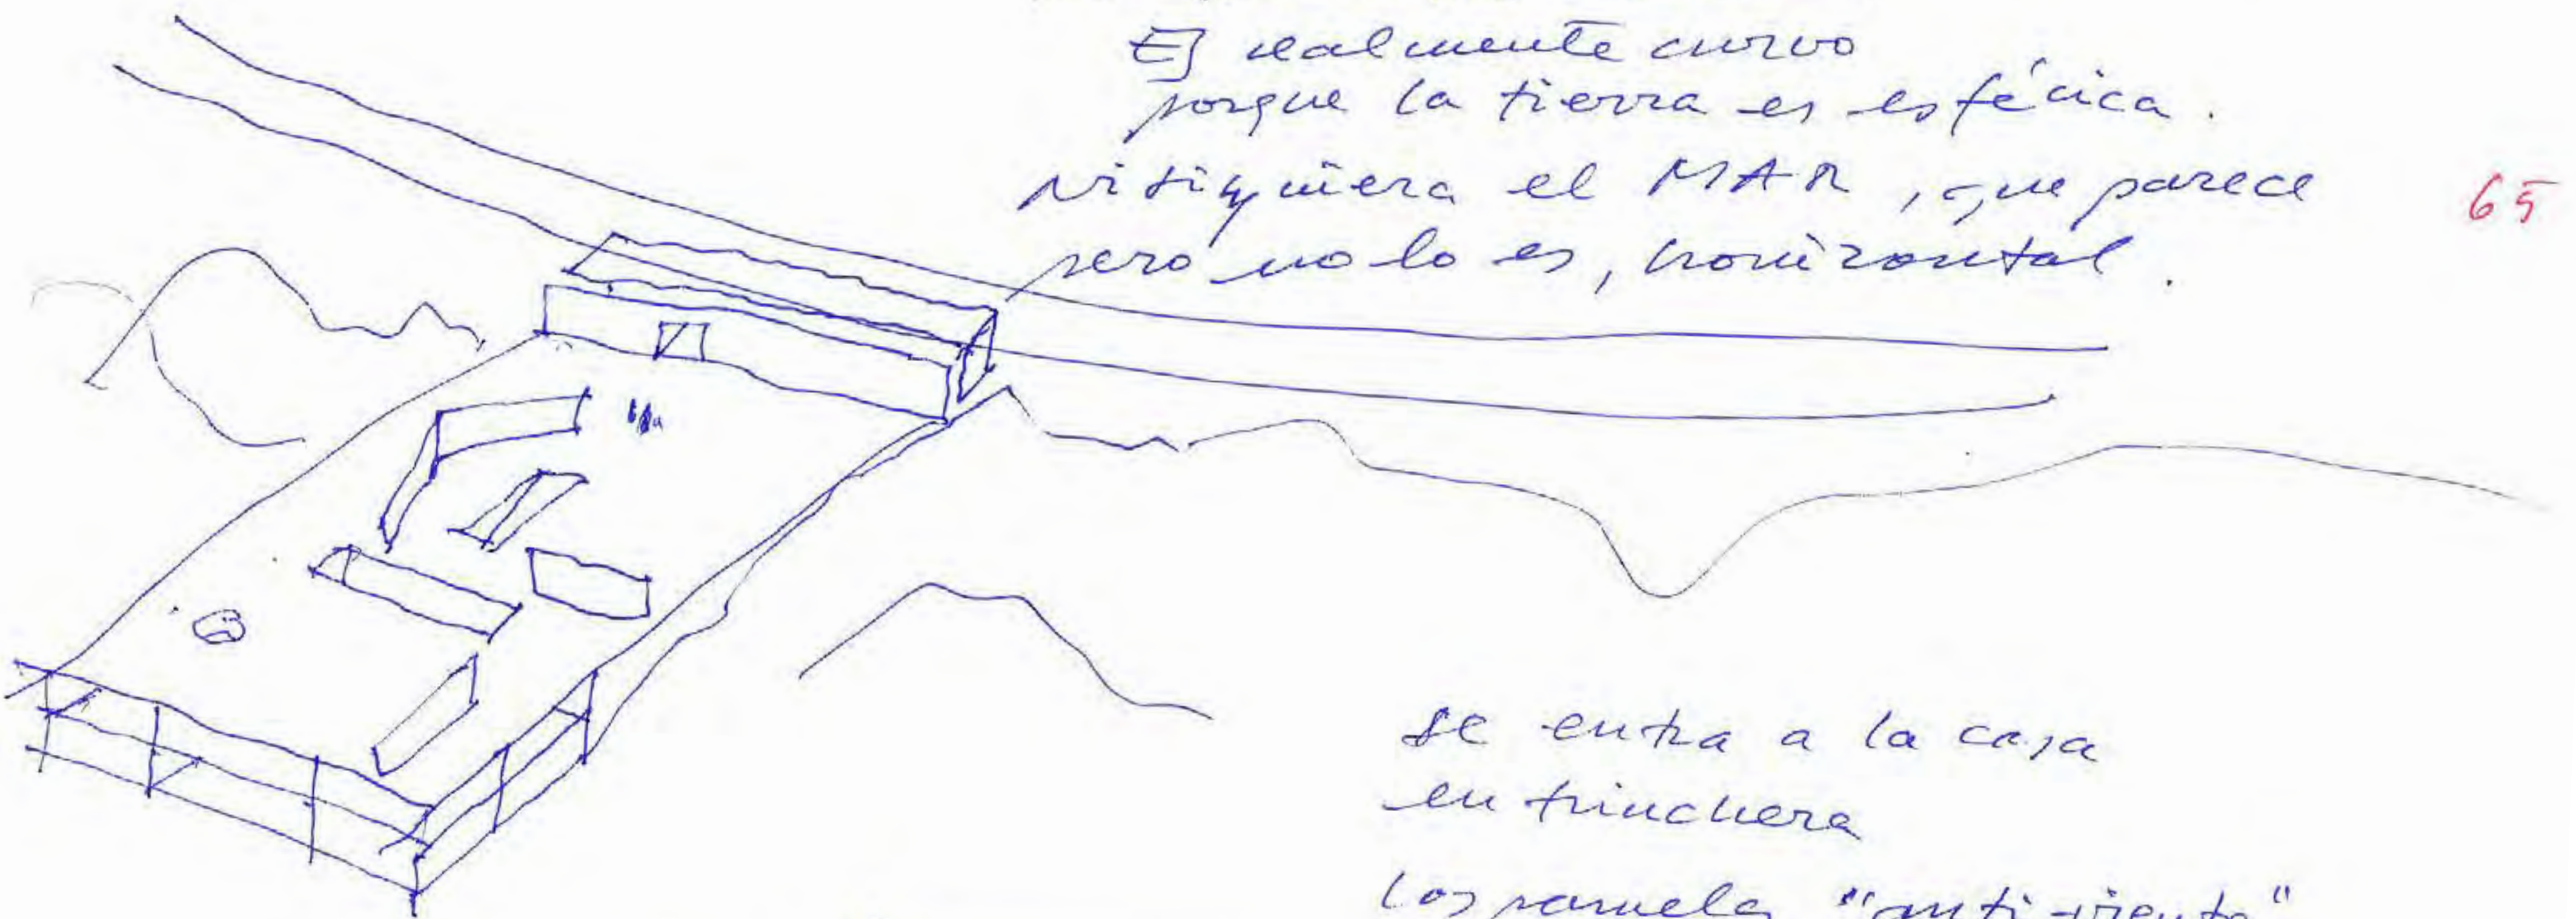 Es realmente curvo
porque la tierra es esférica.
ni siquiera el MAR, que parece
65
pero no lo es, horizontal.
se entra a la casa
en trinchera
los paneles "anti-viento"